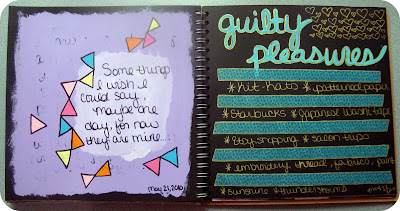 Some things
I wish I
could say,
maybe one
day, for now
they are mine....
May 21, 2010
guilty
pleasures
*kit-kats *patterned paper
*Starbucks *Japanese washi tape
*Etsy shopping *salon trips
*embroidery thread, fabrics, paint
*sunshine *thunderstorms